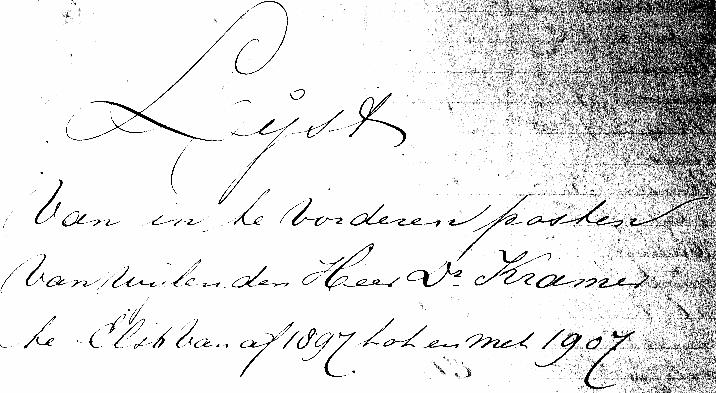 Lijst
Van in te vorderen posten
Van wijlen den Heer Dr. Kramer
te Elst Van af 1897 tot en met 1907